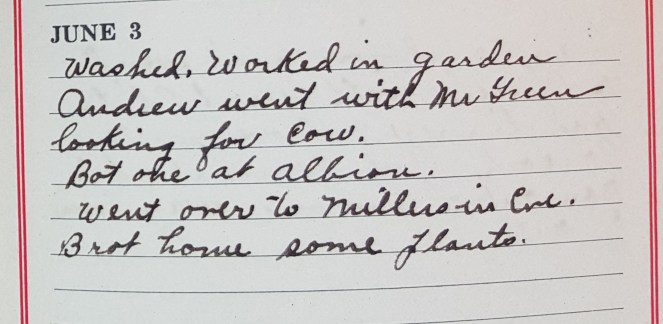 JUNE 3
Washed. Worked in garden
Andrew went with Mr Green
looking for Cow.
Bot one at Albion.
Went over to Millers in Eve.
Brot home some plants.